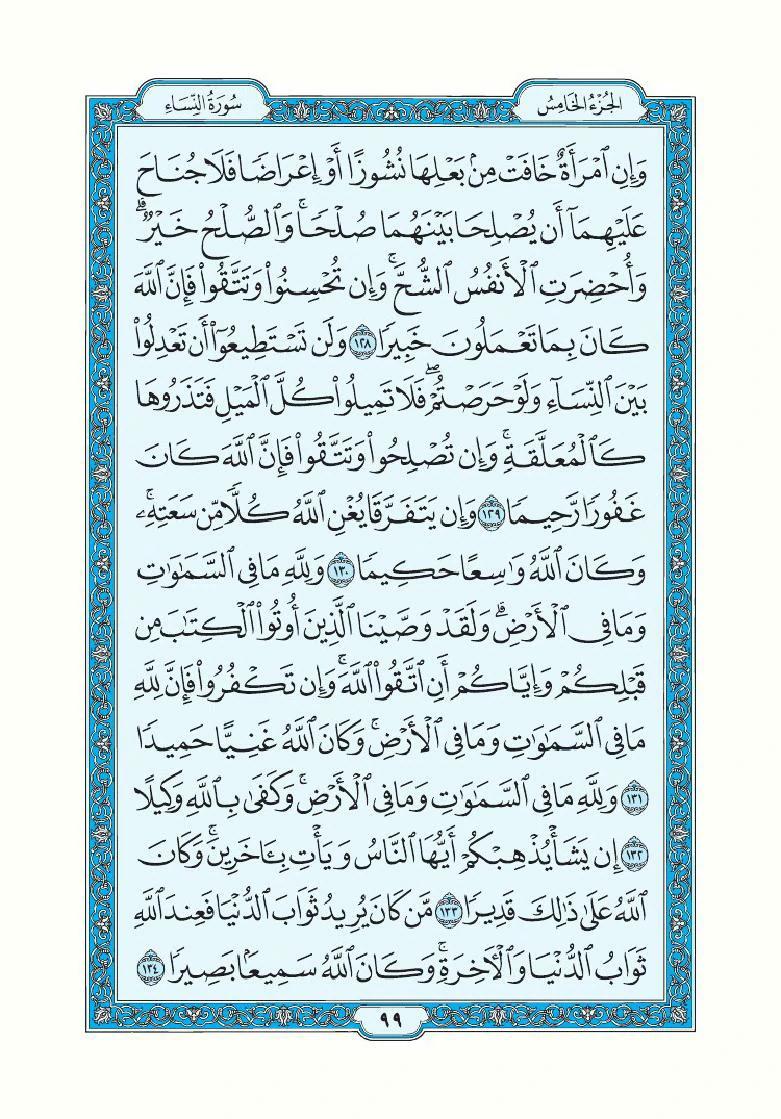 الجُزْءُ الخَامِسُ
سُورَةُ النِّسَاءِ
وَإِنِ ٱمْرَأَةٌ خَافَتْ مِنۢ بَعْلِهَا نُشُوزًا أَوْ إِعْرَاضًا فَلَا جُنَاحَ
عَلَيْهِمَآ أَن يُصْلِحَا بَيْنَهُمَا صُلْحًاۚ وَٱلصُّلْحُ خَيْرٌۗ
وَأُحْضِرَتِ ٱلْأَنفُسُ ٱلشُّحَّۚ وَإِن تُحْسِنُوا۟ وَتَتَّقُوا۟ فَإِنَّ ٱللَّهَ
كَانَ بِمَا تَعْمَلُونَ خَبِيرًا ١٢٨ وَلَن تَسْتَطِيعُوٓا۟ أَن تَعْدِلُوا۟
بَيْنَ ٱلنِّسَآءِ وَلَوْ حَرَصْتُمْۖ فَلَا تَمِيلُوا۟ كُلَّ ٱلْمَيْلِ فَتَذَرُوهَا
كَٱلْمُعَلَّقَةِۚ وَإِن تُصْلِحُوا۟ وَتَتَّقُوا۟ فَإِنَّ ٱللَّهَ كَانَ
غَفُورًا رَّحِيمًا ١٢٩ وَإِن يَتَفَرَّقَا يُغْنِ ٱللَّهُ كُلًّا مِّن سَعَتِهِۦۚ
وَكَانَ ٱللَّهُ وَٰسِعًا حَكِيمًا ١٣٠ وَلِلَّهِ مَا فِى ٱلسَّمَٰوَٰتِ
وَمَا فِى ٱلْأَرْضِۗ وَلَقَدْ وَصَّيْنَا ٱلَّذِينَ أُوتُوا۟ ٱلْكِتَٰبَ مِن
قَبْلِكُمْ وَإِيَّاكُمْ أَنِ ٱتَّقُوا۟ ٱللَّهَۚ وَإِن تَكْفُرُوا۟ فَإِنَّ لِلَّهِ
مَا فِى ٱلسَّمَٰوَٰتِ وَمَا فِى ٱلْأَرْضِۚ وَكَانَ ٱللَّهُ غَنِيًّا حَمِيدًا
١٣١ وَلِلَّهِ مَا فِى ٱلسَّمَٰوَٰتِ وَمَا فِى ٱلْأَرْضِۚ وَكَفَىٰ بِٱللَّهِ وَكِيلًا
١٣٢ إِن يَشَأْ يُذْهِبْكُمْ أَيُّهَا ٱلنَّاسُ وَيَأْتِ بِـَٔاخَرِينَۚ وَكَانَ
ٱللَّهُ عَلَىٰ ذَٰلِكَ قَدِيرًا ١٣٣ مَّن كَانَ يُرِيدُ ثَوَابَ ٱلدُّنْيَا فَعِندَ ٱللَّهِ
ثَوَابُ ٱلدُّنْيَا وَٱلْـَٔاخِرَةِۚ وَكَانَ ٱللَّهُ سَمِيعًۢا بَصِيرًا ١٣٤
٩٩